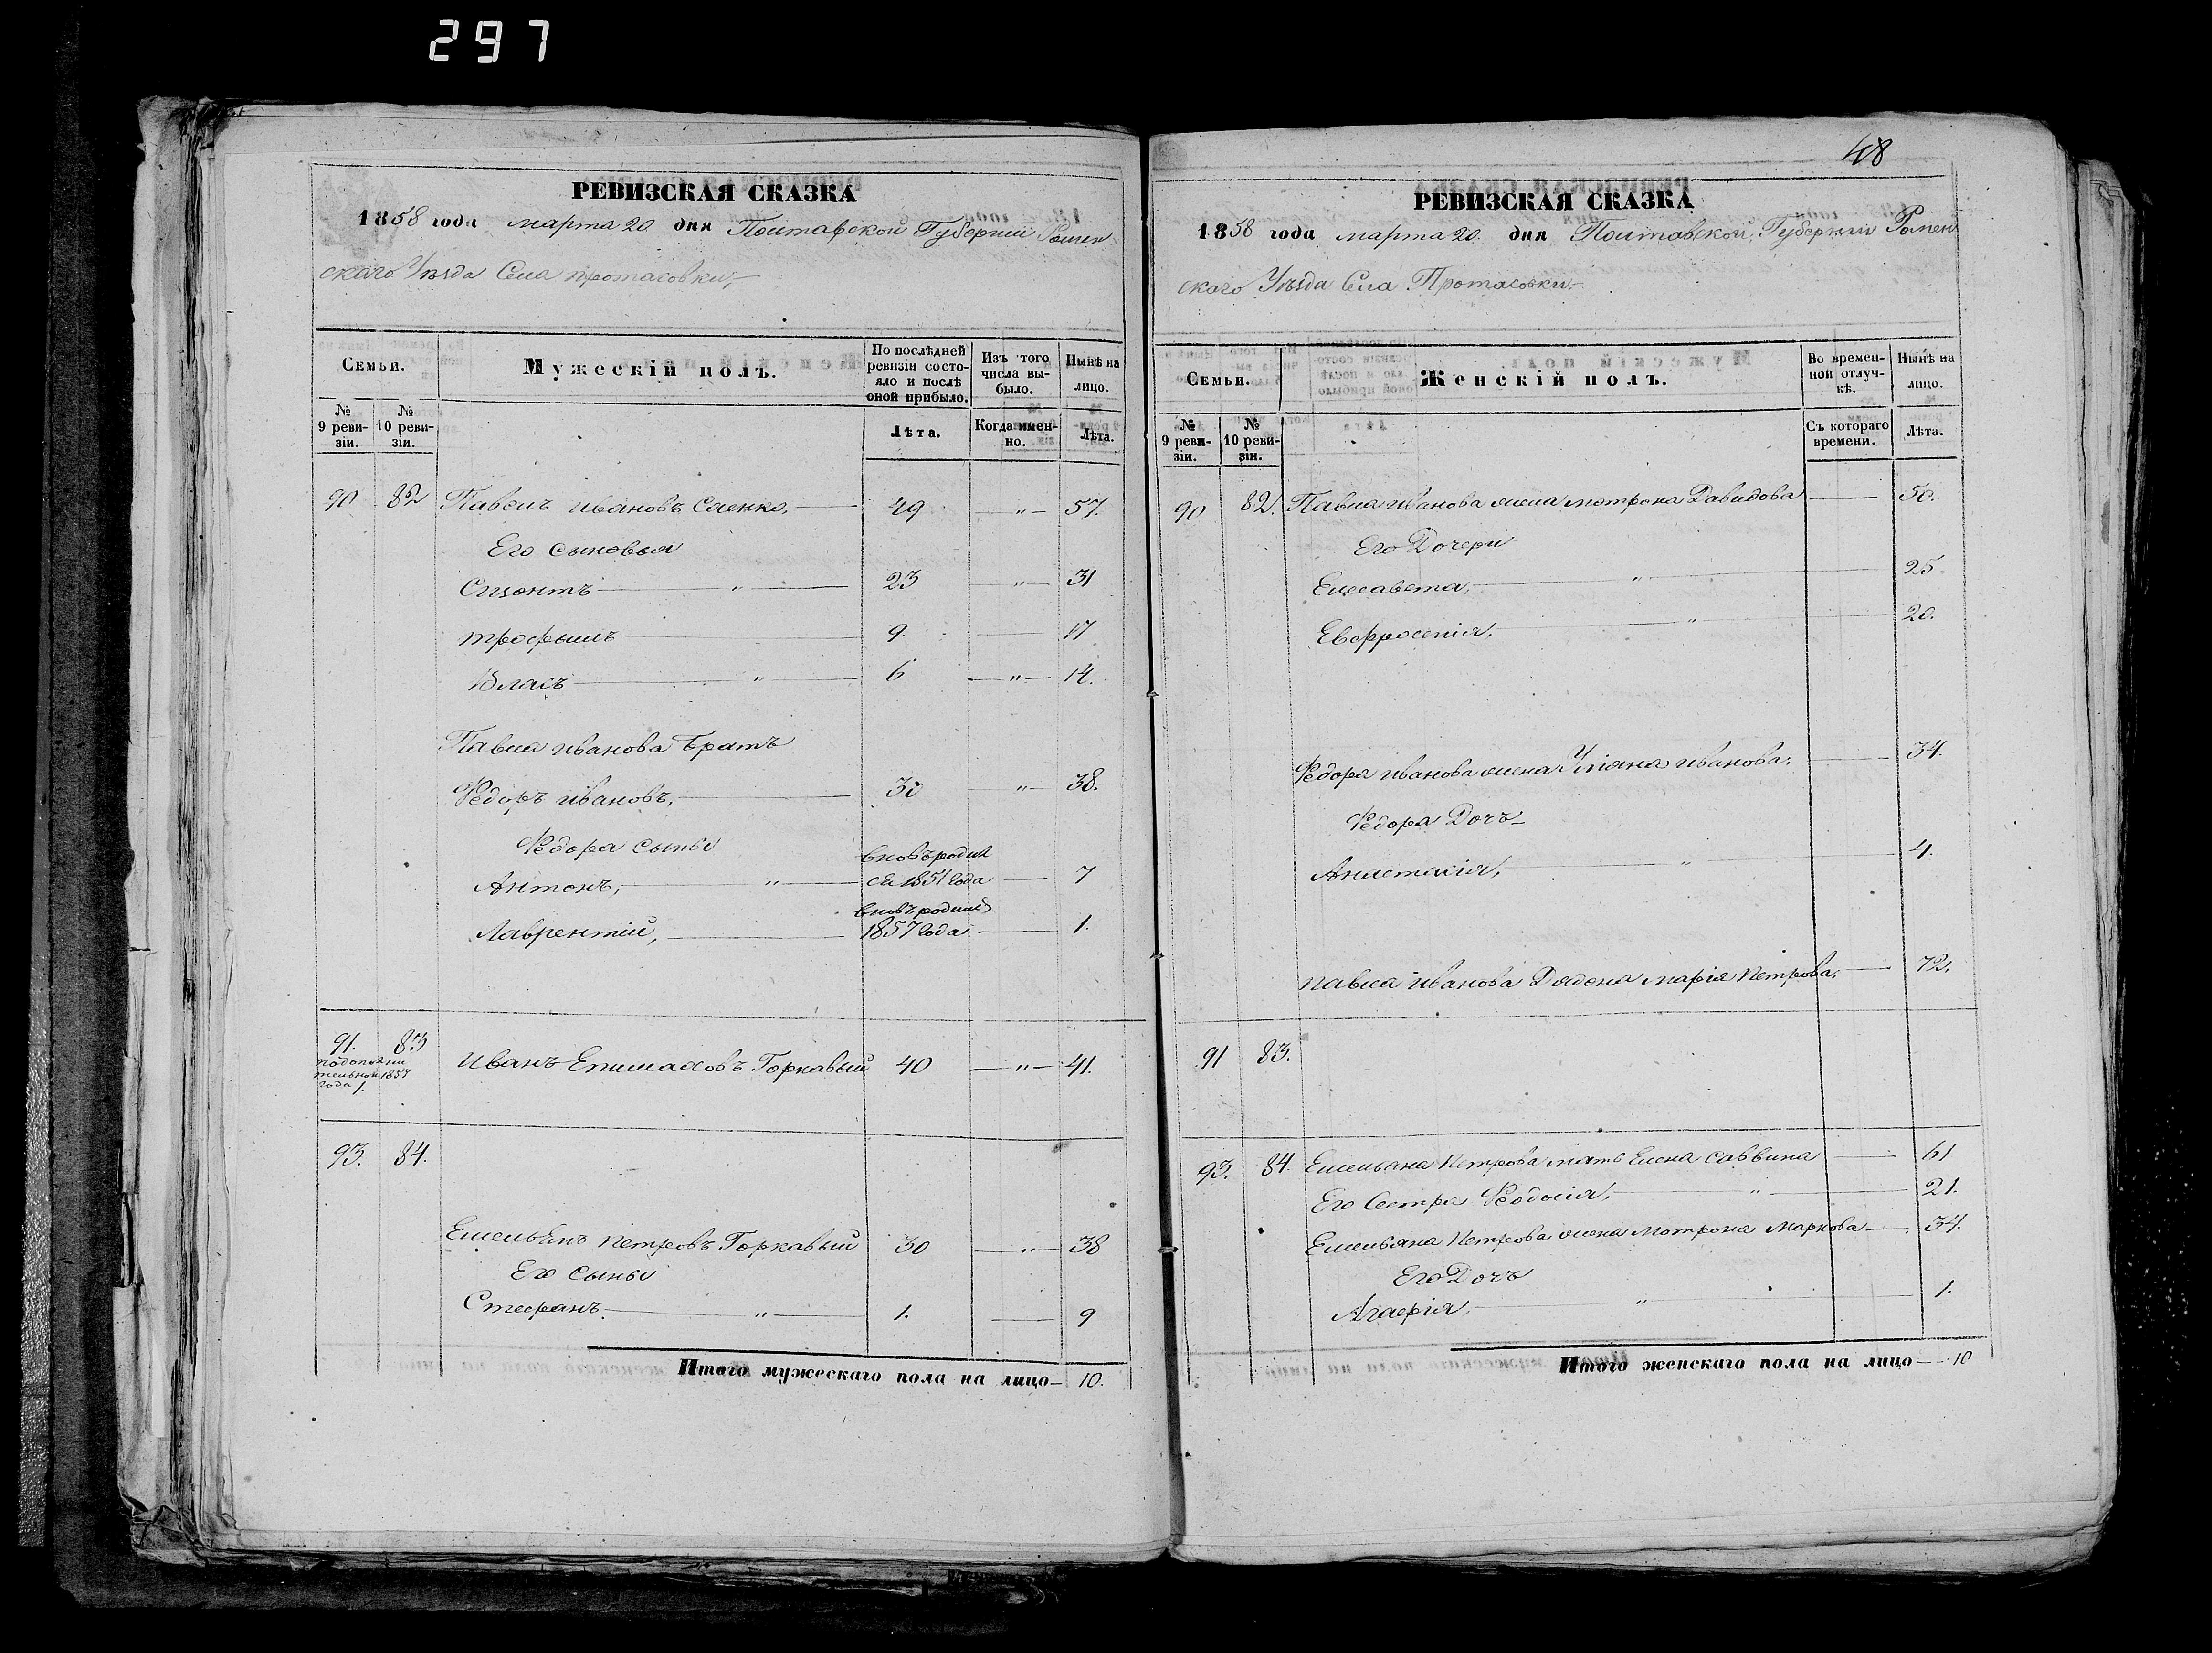 297
РЕВИЗСКАЯ СКАЗКА
1858 года марта 20 дня Полтавской Губернии Ромен
скаго Уѣзда Села протасовки,
Семьи.
Мужескій полъ.
По послѣдней ревизіи состояло и послѣ оной прибыло.
Изъ того числа выбыло.
Нынѣ на лицо.
№ 9 ревизіи.
№ 10 ревизіи.
Лѣта.
Когда именно.
Лѣта.
90 82 Павелъ ивановъ Саенко, 49 " 57.
Его сыновья
" 23 " 31
трофымъ 9. 17
Власъ " 6 " 14.
Павла иванова Братъ
Федоръ ивановъ, 30 " 38.
Федора сыны
вновь родил
Антонъ, " ся 1851 года 7
вновь родил
Лаврентій, 1857 года 1.
91. 83 иванъ Епимаховъ Горкавый 40 " 41.
по дополни
тельной 1857
года 1.
93. 84.
Емельянъ петровъ Горкавый 30 " 38
Его сыны
Стефанъ " 1. 9
Итого мужескаго пола на лицо 10.
48
РЕВИЗСКАЯ СКАЗКА
1858 года марта 20. дня Полтавской Губерніи Ромен
скаго Уѣзда Села Протасовки
Семьи.
Женскій полъ.
Во временной отлучкѣ.
Нынѣ на лицо.
№ 9 ревизіи.
№ 10 ревизіи.
Съ котораго времени.
Лѣта.
90 82. Павла иванова жена мотрона Давидова 50.
Его Дочери
Елесавета, " 25
Евфросенія, " 20.
Федора иванова жена Уліяна иванова. 34.
Федора Дочь
Анастасія, " 4.
павла иванова Дядена марія Петрова, 72.
91 83.
93. 84. Емельяна Петрова мать Елена саввина 61
Его Сестра Феодосія, " 21.
Емельяна Петрова жена мотрона маркова 34.
Его Дочь
Агафія, " 1.
Итого женскаго пола на лицо 10